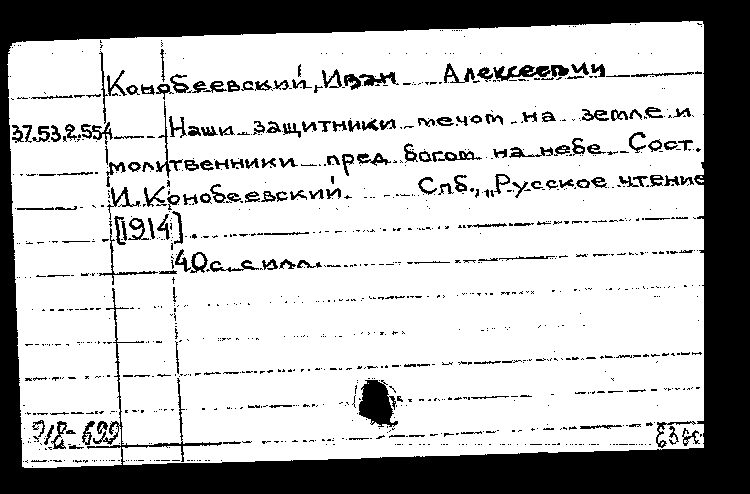 Конобеевский, Иван Алексеевич
37.53.2.554 Наши защитники мечом на земле и
молитвенники пред богом на небе. Сост.
И. Конобеевский. Спб., "Русское чтение
[1914].
40 с. с илл.
918-699